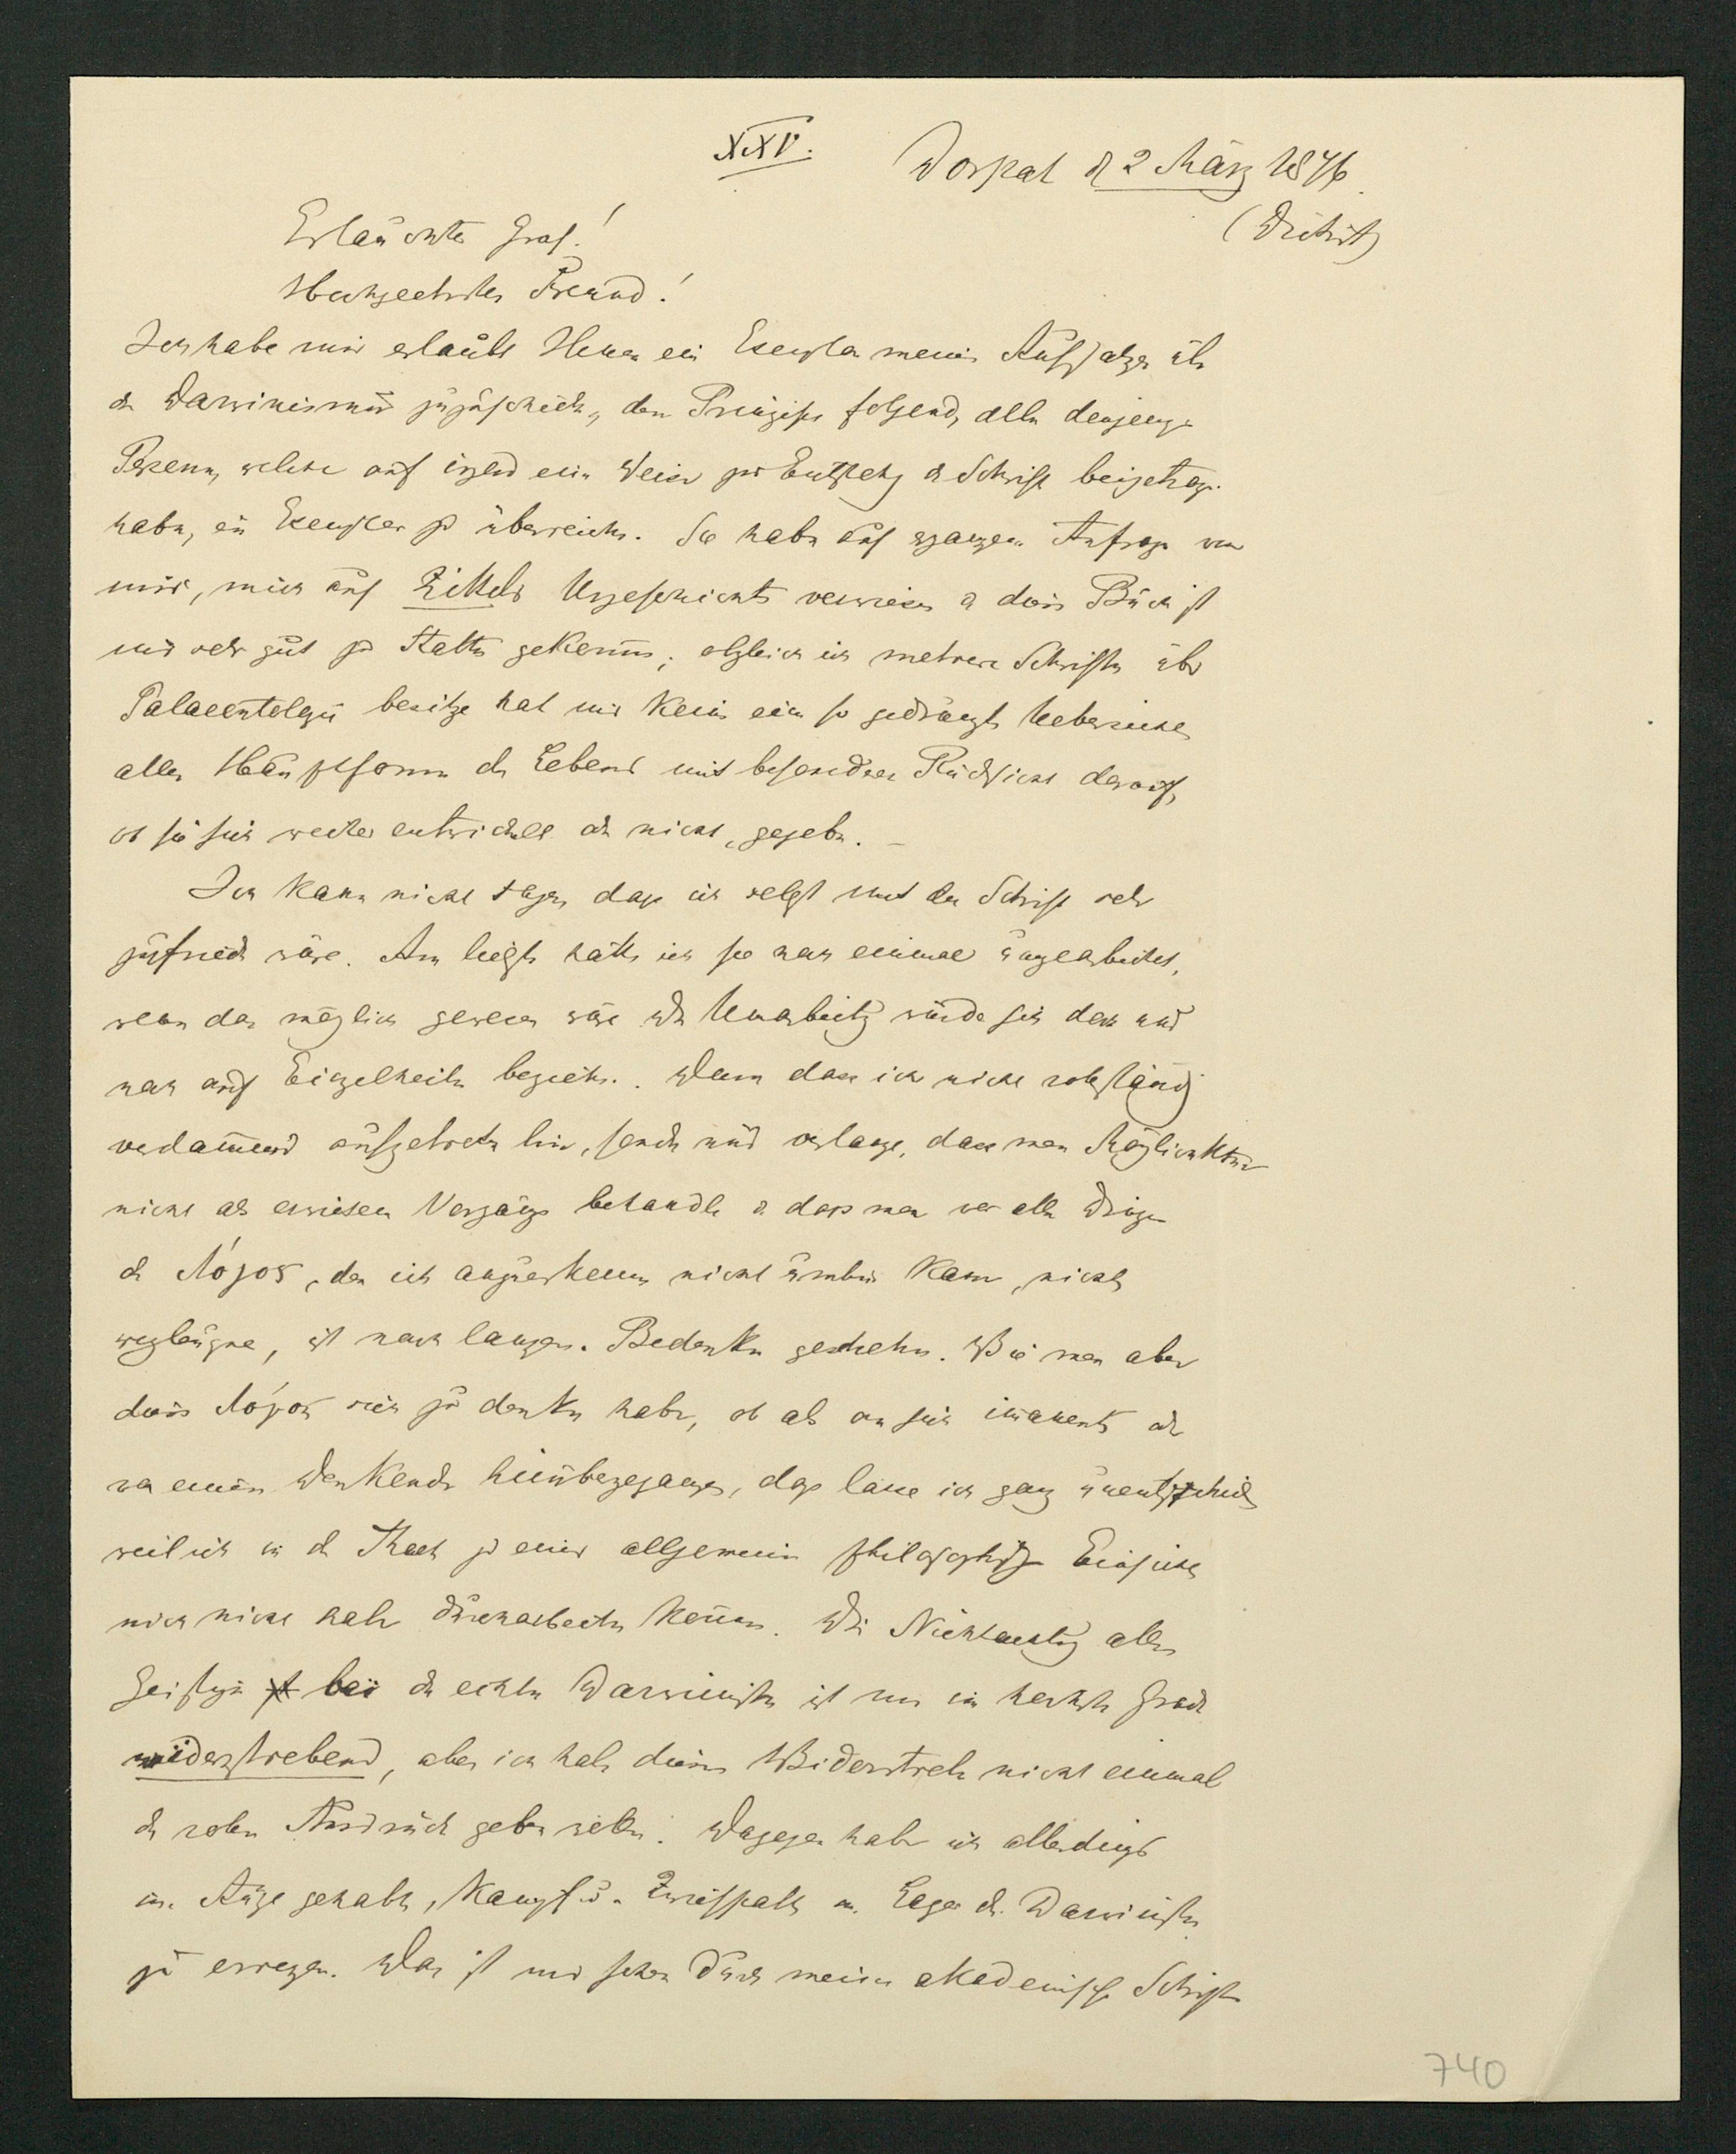 XXV.
Dorpat d 2 März 1876.
(Dictirt)
Erlauchter Graf!
Hochgeehrter Freund!
Ich habe mir erlaubt Ihnen ein Exemplar meines Aufsatzes über
den Darwinismus zuzuschicken, dem Prinzipe folgend, allen denjenigen
Personen, welche auf irgend eine Weise zur Entstehung d Schrift beigetragen
haben, ein Exemplar zu überreichen. Sie haben auf ergangene Anfrage von
mir, mich auf Zittels Urgeschichte verwiesen & dies Buch ist
mir sehr gut zu Statten gekommen; obgleich ich mehrere Schriften über
Palaeontologie besitze hat mir keine eine so gedrängte Uebersicht
aller Hauptformen des Lebens mit besonderer Rücksicht darauf,
ob sie sich weiter entwickelt oder nicht, gegeben. –
Ich kann nicht sagen, dass ich selbst mit der Schrift sehr
zufrieden wäre. Am liebsten hätte ich sie noch einmal umgearbeitet,
wenn das möglich gewesen wäre. Die Umarbeitung würde sich doch nur
noch auf Einzelheiten beziehen. Denn dass ich nicht vollständig
verdammend aufgetreten bin, sondern nur verlange, dass man Möglichkeiten
nicht als erwiesene Vorgänge behandle & dass man vor allen Dingen
den Λόγος, den ich anzuerkennen nicht umhin kann, nicht
wegleugne, ist nach langem Bedenken geschehen. Wie man aber
diesen Λόγος sich zu denken habe, ob als an sich immanent oder
von einem Denkenden hinübergegangen, dass lasse ich ganz unentschieden
weil ich in der That zu einer allgemein philosophischen Einsicht
mich nicht habe durcharbeiten können. Die Nichtachtung alles
Geistigen bei den echten Darwinisten ist mir im höchsten Grade
widerstrebend, aber ich habe diesem Widerstreben nicht einmal
den vollen Ausdruck geben wollen. Dagegen habe ich allerdings
im Auge gehabt, Kampf u. Zwiespalt im Lager der Darwinisten
zu erregen. Das ist mir schon durch meine akademische Schrift
740